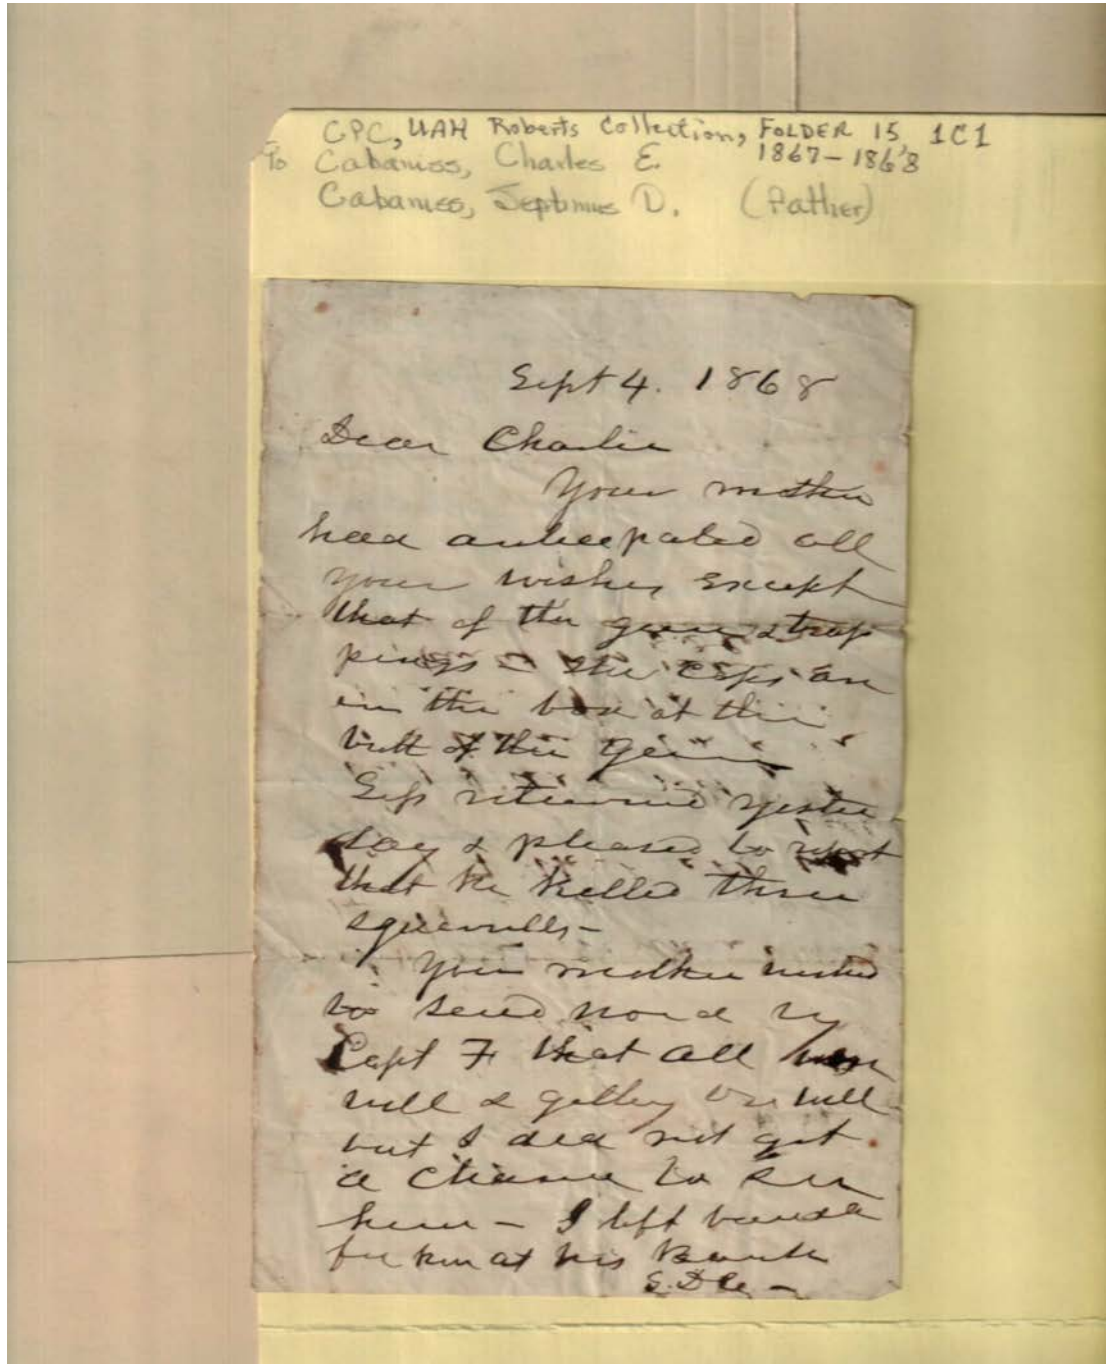 CPC, UAH Roberts Collection, FOLDER 15 1C1
To Cabaniss, Charles E. 1867-1868
Cabaniss, Septimus D. (Father)
Sept 4. 1868
Dear Charlie
Your mother
had anticipated all
your wishes except
that of the gun & trap
pings & the caps are
in the box at the
butt of the gun
Sep returned yester
day & pleased to report
that he killed three
squirrells -
Your mother wished
to send word by
Capt F that all
well & getting on well
but I did not get
a chance to see
him - I left
for him at his Bank
S.D.C. -